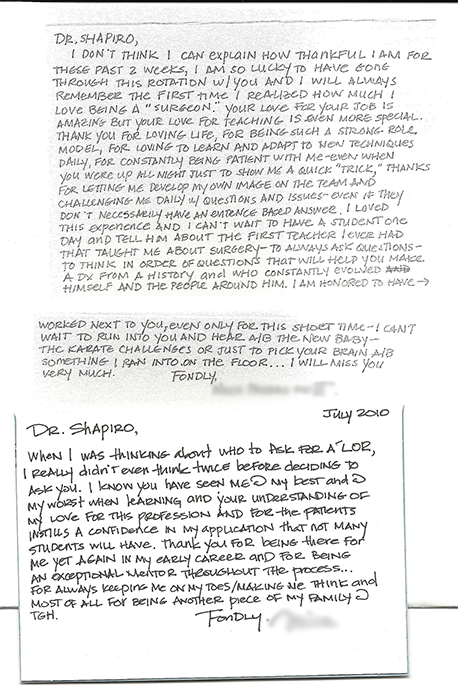 DR. SHAPIRO,
I DON'T THINK I CAN EXPLAIN HOW THANKFUL I AM FOR
THESE PAST 2 WEEKS, I AM SO LUCKY TO HAVE GONE
THROUGH THIS ROTATION W/ YOU AND I WILL ALWAYS
REMEMBER THE FIRST TIME I REALIZED HOW MUCH I
LOVE BEING A "SURGEON." YOUR LOVE FOR YOUR JOB IS
AMAZING BUT YOUR LOVE FOR TEACHING IS EVEN MORE SPECIAL.
THANK YOU FOR LOVING LIFE, FOR BEING SUCH A STRONG ROLE
MODEL, FOR LOVING TO LEARN AND ADAPT TO NEW TECHNIQUES
DAILY, FOR CONSTANTLY BEING PATIENT WITH ME-EVEN WHEN
YOU WERE UP ALL NIGHT JUST TO SHOW ME A QUICK "TRICK," THANKS
FOR LETTING ME DEVELOP MY OWN IMAGE ON THE TEAM AND
CHALLENGING ME DAILY W/ QUESTIONS AND ISSUES-EVEN IF THEY
DON'T NECESSARILY HAVE AN EVIDENCE BASED ANSWER. I LOVED
THIS EXPERIENCE AND I CAN'T WAIT TO HAVE A STUDENT ONE
DAY AND TELL HIM ABOUT THE FIRST TEACHER I EVER HAD
THAT TAUGHT ME ABOUT SURGERY-TO ALWAYS ASK QUESTIONS-
TO THINK IN ORDER OF QUESTIONS THAT WILL HELP YOU MAKE
A Dx FROM A HISTORY and WHO CONSTANTLY EVOLVED
HIMSELF AND THE PEOPLE AROUND HIM. I AM HONORED TO HAVE →
WORKED NEXT TO YOU, EVEN ONLY FOR THIS SHORT TIME-I CAN'T
WAIT TO RUN INTO YOU AND HEAR A/B THE NEW BABY-
THE KARATE CHALLENGES OR JUST TO PICK YOUR BRAIN A/B
SOMETHING I RAN INTO ON THE FLOOR... I WILL MISS YOU
VERY MUCH. FONDLY,
JULY 2010
DR. SHAPIRO,
WHEN I WAS THINKING about WHO TO ASK FOR A LOR,
I REALLY DIDN'T EVEN THINK TWICE BEFORE DECIDING TO
ASK YOU. I KNOW YOU HAVE SEEN ME @ MY BEST and @
MY WORST WHEN LEARNING AND YOUR UNDERSTANDING OF
MY LOVE FOR THIS PROFESSION AND FOR THE PATIENTS
INSTILLS A CONFIDENCE IN MY APPLICATION THAT NOT MANY
STUDENTS WILL HAVE. THANK YOU FOR BEING THERE FOR
ME YET AGAIN IN MY EARLY CAREER AND FOR BEING
AN EXCEPTIONAL MENTOR THROUGHOUT THE PROCESS...
FOR ALWAYS KEEPING ME ON MY TOES/MAKING ME THINK and
MOST OF ALL FOR BEING ANOTHER PIECE OF MY FAMILY @
TGH. FONDLY,